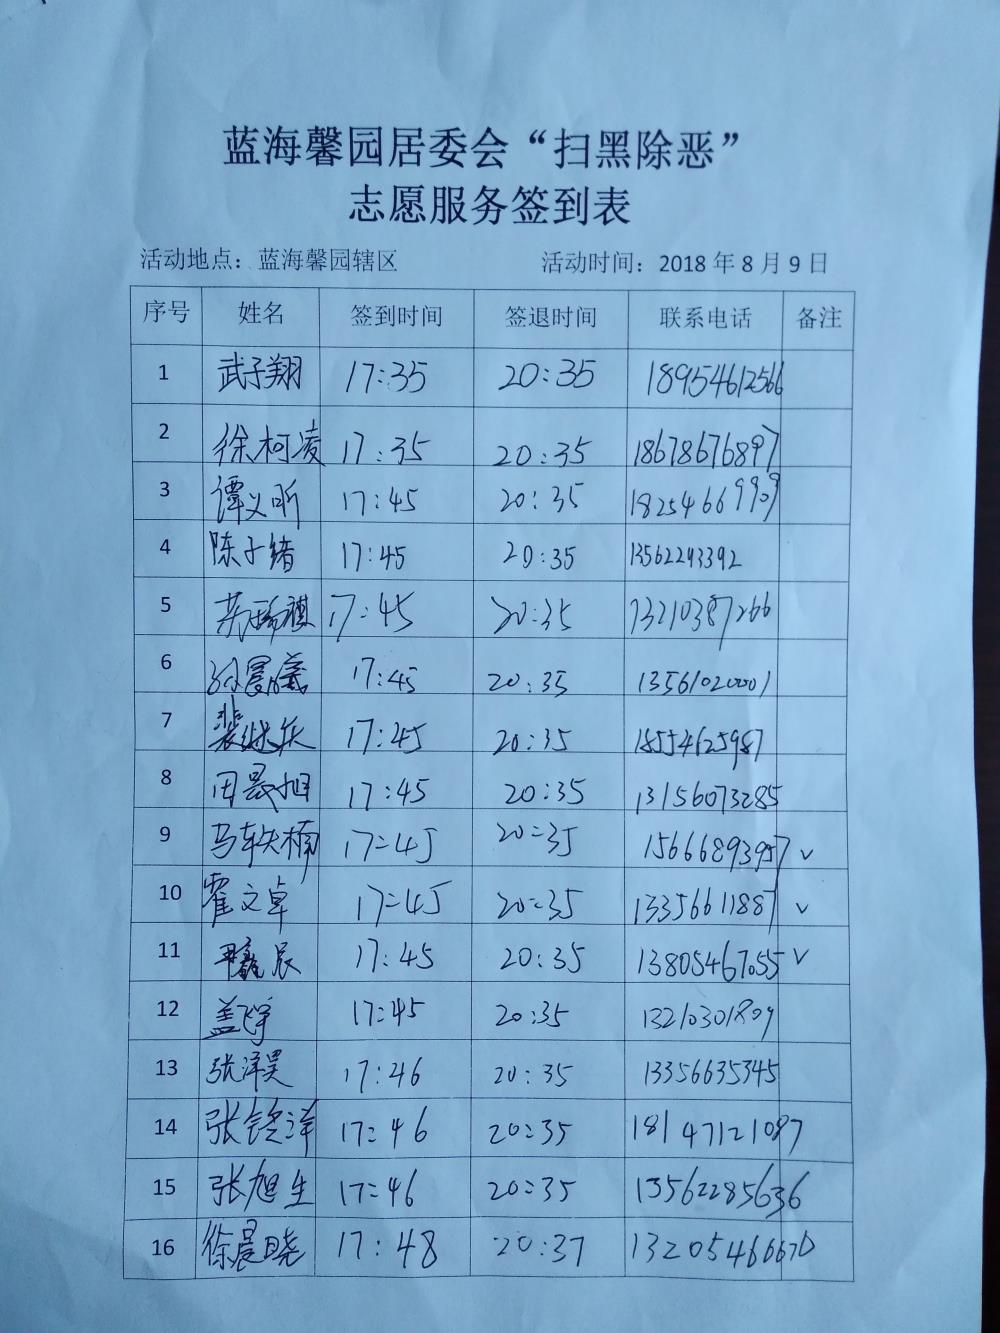 蓝海馨园居委会“扫黑除恶”
志愿服务签到表
活动地点：蓝海馨园辖区 活动时间：2018 年 8 月 9 日
序号 姓名 签到时间 签退时间 联系电话 备注
1 武子翔 17:35 20:35 18954612566
2 徐柯凌 17:35 20:35 18678676897
3 谭义昕 17:45 20:35 18254669909
4 陈子绪 17:45 20:35 13562293392
5 17:45 20:35 13210387266
6 17:45 20:35 13561020001
7 17:45 20:35 18554625987
8 田晨旭 17:45 20:35 13156073285
9 马轶楠 17:45 20:35 15666893957 √
10 霍文卓 17:45 20:35 13356611887 √
11 17:45 20:35 13805467055 √
12 盖飞宇 17:45 20:35 13210301809
13 张泽昊 17:46 20:35 13356635345
14 张铭洋 17:46 20:35 18147121087
15 张旭生 17:46 20:35 13562285636
16 徐晨晓 17:48 20:37 13205466676